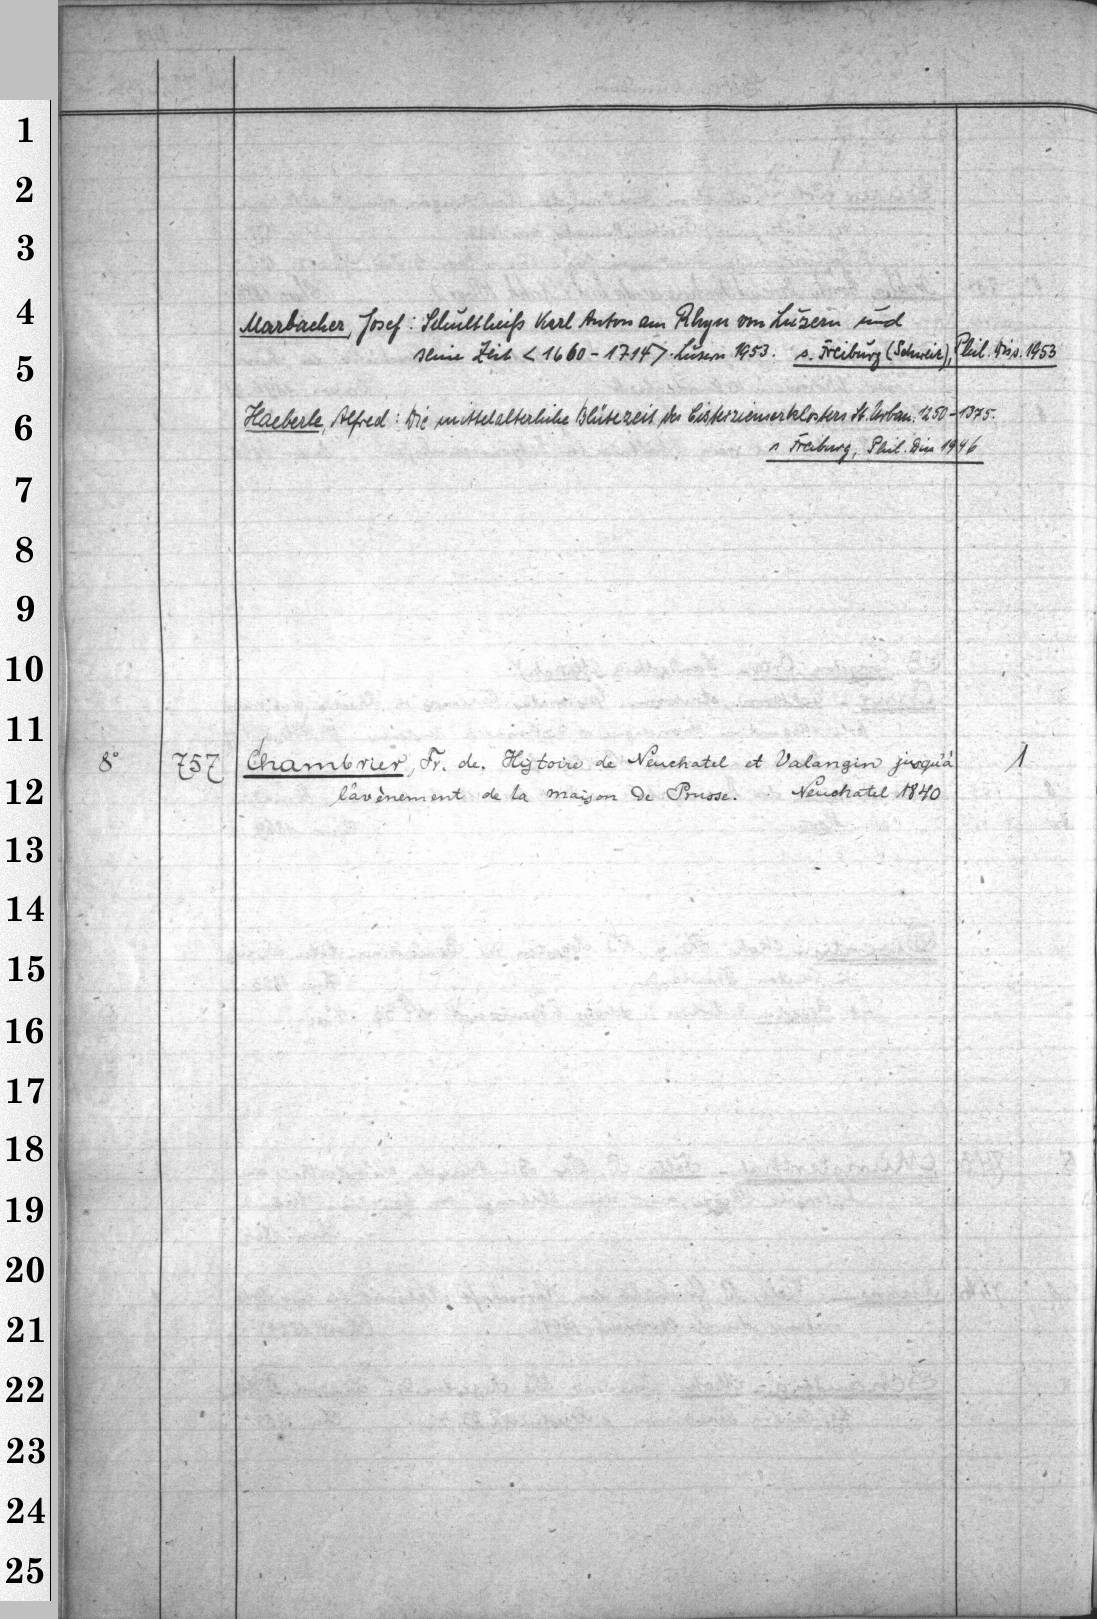 1
2
3
4
Marbacher, Josef: Schultheiß Karl Anton am Rhyn von Luzern und
5
seine Zeit <1660-1714>. Luzern 1953. s. Freiburg (Schweiz), Phil. Diss. 1953
6
Haeberle, Alfred: Die mittelalterliche Blütezeit des Cisterzienserklosters St. Urban. 1250-1375.
s Freiburg, Phil. Diss 1946
7
8
9
10
11
8° 757 Chambrier, Fr. de. Histoire de Neuchatel et Valangin jusqu'à 1
12
l'avènement de la maison de Prusse. Neuchatel 1840
13
14
15
16
17
18
19
20
21
22
23
24
25